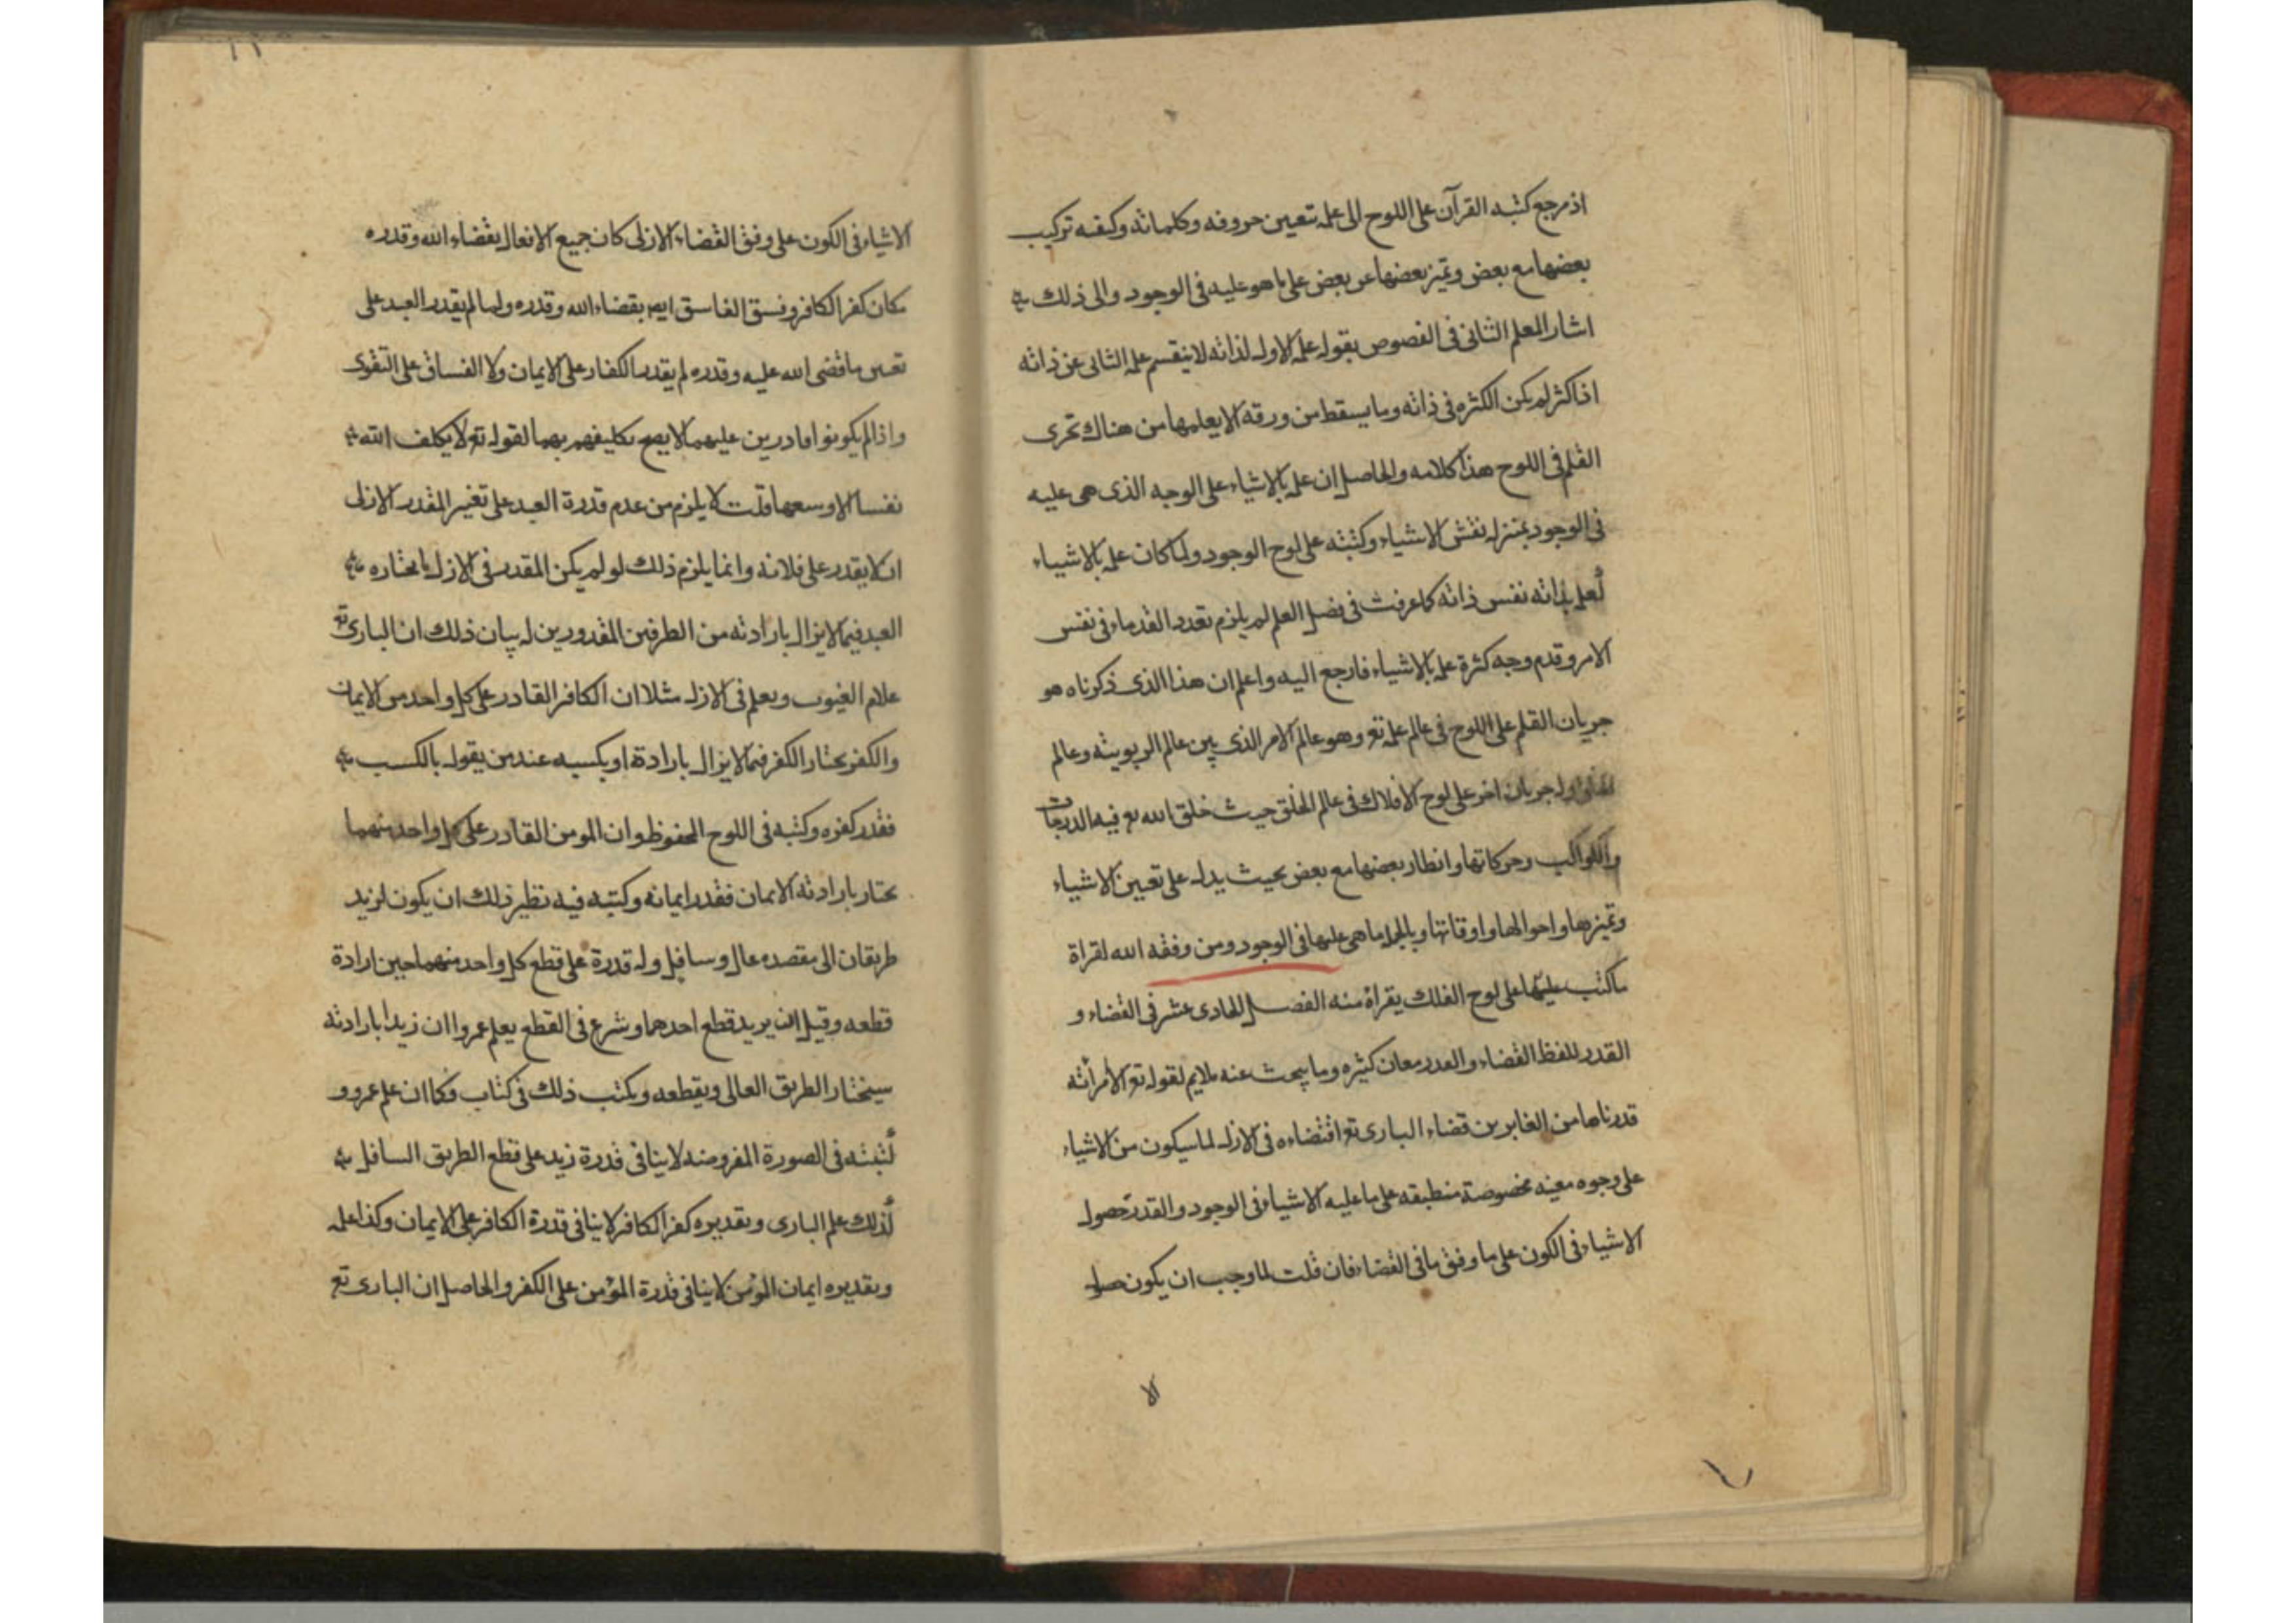 اذ مرجع كتبه القرآن على اللوح الى علمه تعيين حروفه وكلماته وكيفيه تركيب
بعضها مع بعض وتميز بعضها عن بعض على ما هو عليه فى الوجود والى ذلك
اشار المعلم الثانى فى الفصوص بقوله علمه الاول لذاته لا ينقسم علمه الثانى عن ذاته
اذا كثر لم يكن الكثره فى ذاته وما يسقط من ورقه الا يعلمها من هناك تجرى
القلم فى اللوح هذا كلامه والحاصل ان علمه بالاشياء على الوجه الذى هى عليه
فى الوجود بمنزله نقش الاشياء وكتبته على لوح الوجود ولما كان علمه بالاشياء
كعلمه بذاته نفس ذاته كما عرفت فى فصل العلم لم يلزم تعدد القدماء فى نفس
الامر وقدم وجه كثرة علمه بالاشياء فارجع اليه واعلم ان هذا الذى ذكرناه هو
جريان القلم على اللوح فى عالم علمه تع وهو عالم الامر الذى بين عالم الربوبيته وعالم
جريان اخر على لوح الافلاك فى عالم الخلق حيث خلق الله تع فيه الدرجات
والكواكب وحركاتها وانظار بعضها مع بعض بحيث يدل على تعيين الاشياء
وتميزها واحوالها واوقاتها وبالجمله ما هى عليها فى الوجود ومن وفقه الله لقراة
ما كتب عليها على لوح الفلك يقراة منه الفصل الحادى عشر فى القضاء و
القدر للفظ القضاء والقدر معان كثيره وما يبحث عنه ملايم لقوله تع الا امرأته
قدرناها من الغابرين قضاء البارى تع اقتضاءه فى الازل لما سيكون من الاشياء
على وجوه معينه مخصوصة منطبقه على ما عليه الاشياء فى الوجود والقدر حصول
الاشياء فى الكون على ما وفق ما فى القضاء فان قلت لما وجب ان يكون حصول
الا
الاشياء فى الكون على وفق القضاء الازلى كان جميع الافعال بقضاء الله وقدره
مكان كفر الكافر وفسق الفاسق ايض بقضاء الله وقدره ولما لم يقدر العبد على
تغيير ما قضى الله عليه وقدره لم يقدر الكفار على الايمان ولا الفساق على التقوى
واذا لم يكونوا قادرين عليهما لا يصح تكليفهم بهما لقوله تع لا يكلف الله
نفسا الا وسعها قلت لا يلزم من عدم قدرة العبد على تغيير المقدر الازلى
ان لا يقدر على خلافه وانما يلزم ذلك لو لم يكن المقدر فى الازل ما يختاره
العبد فيما لا يزال بارادته من الطرفين المقدورين له بيان ذلك ان البارى تع
علام الغيوب ويعلم فى الازل مثلا ان الكافر القادر على كل واحد من الايمان
والكفر يختار الكفر فيما لا يزال بارادة او بكسبه عند من يقول بالكسب
فقدر كفره وكتبه فى اللوح المحفوظ وان المومن القادر على كل واحد منهما
يختار بارادته الايمان فقدر ايمانه وكتبه فيه نظير ذلك ان يكون لزيد
طريقان الى مقصده عال وسافل وله قدرة على قطع كل واحد منهما حين ارادة
قطعه وقبل ان يريد قطع احدهما وشرع فى القطع يعلم عمرو ان زيدا بارادته
سيختار الطريق العالى ويقطعه ويكتب ذلك فى كتاب فكما ان علم عمرو و
كتبته فى الصورة المفروضه لا ينافى قدرة زيد على قطع الطريق السافل
كذلك علم البارى وتقديره كفر الكافر لا ينافى قدرة الكافر على الايمان وكذا علمه
وتقديره ايمان المؤمن لا ينافى قدرة المؤمن على الكفر والحاصل ان البارى تع